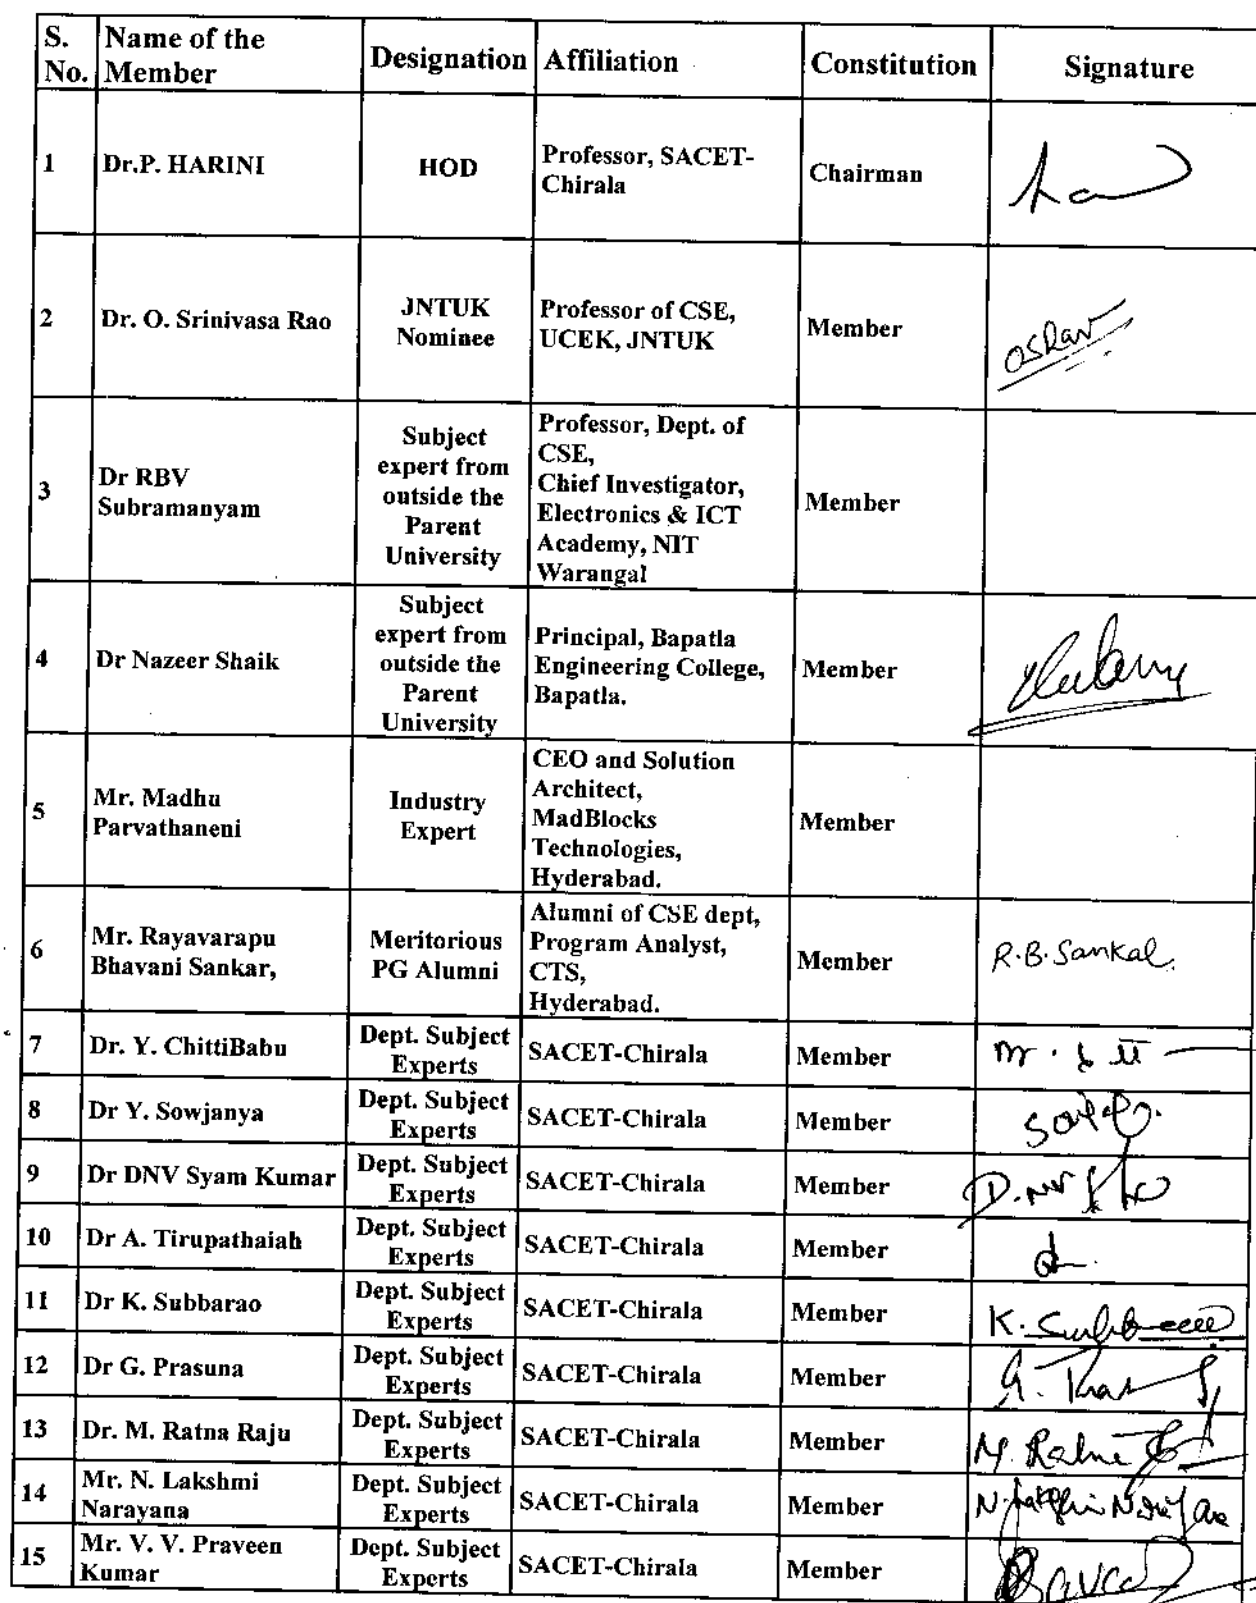 S. No. Name of the Member Designation Affiliation Constitution Signature
1 Dr.P. HARINI HOD Professor, SACET-
Chirala Chairman
2 Dr. O. Srinivasa Rao JNTUK
Nominee Professor of CSE,
UCEK, JNTUK Member OSRao
3 Dr RBV
Subramanyam Subject
expert from
outside the
Parent
University Professor, Dept. of
CSE,
Chief Investigator,
Electronics & ICT
Academy, NIT
Warangal Member
4 Dr Nazeer Shaik Subject
expert from
outside the
Parent
University Principal, Bapatla
Engineering College,
Bapatla. Member
5 Mr. Madhu
Parvathaneni Industry
Expert CEO and Solution
Architect,
MadBlocks
Technologies,
Hyderabad. Member
6 Mr. Rayavarapu
Bhavani Sankar, Meritorious
PG Alumni Alumni of CSE dept,
Program Analyst,
CTS,
Hyderabad. Member R.B.Sankar
7 Dr. Y. ChittiBabu Dept. Subject
Experts SACET-Chirala Member
8 Dr Y. Sowjanya Dept. Subject
Experts SACET-Chirala Member
9 Dr DNV Syam Kumar Dept. Subject
Experts SACET-Chirala Member
10 Dr A. Tirupathaiah Dept. Subject
Experts SACET-Chirala Member
11 Dr K. Subbarao Dept. Subject
Experts SACET-Chirala Member K. Subbarao
12 Dr G. Prasuna Dept. Subject
Experts SACET-Chirala Member
13 Dr. M. Ratna Raju Dept. Subject
Experts SACET-Chirala Member M. Ratna
14 Mr. N. Lakshmi
Narayana Dept. Subject
Experts SACET-Chirala Member N. Lakshmi Narayana
15 Mr. V. V. Praveen
Kumar Dept. Subject
Experts SACET-Chirala Member